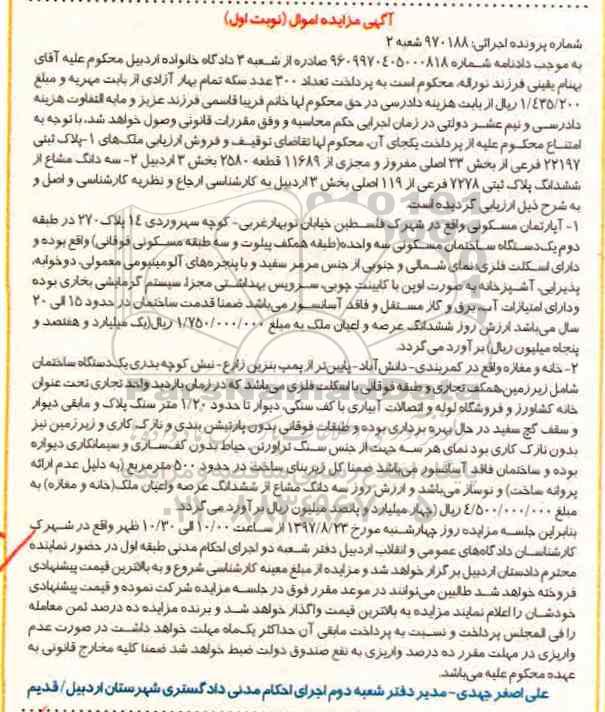 آگهی مزایده اموال (نوبت اول)
شماره پرونده اجرائی: ۹۷۰۱۸۸ شعبه ۲
به موجب دادنامه شماره ۹۶۰۹۹۷۰۴۰۵۰۰۰۸۱۸ صادره از شعبه ۳ دادگاه خانواده اردبیل محکوم علیه آقای
بهنام یقینی فرزند نوراله، محکوم است به پرداخت تعداد ۳۰۰ عدد سکه تمام بهار آزادی از بابت مهریه و مبلغ
۱/۴۳۵/۲۰۰ ریال از بابت هزینه دادرسی در حق محکوم لها خانم فریبا قاسمی فرزند عزیز و مابه التفاوت هزینه
دادرسی و نیم عشر دولتی در زمان اجرایی حکم محاسبه و وفق مقررات قانونی وصول خواهد شد، با توجه به
امتناع محکوم علیه از پرداخت یکجای آن، محکوم لها تقاضای توقیف و فروش ارزیابی ملک‌های ۱-پلاک ثبتی
۲۲۱۹۷ فرعی از بخش ۳۳ اصلی مفروز و مجزی از ۱۱۶۸۹ قطعه ۲۵۸۰ بخش ۳ اردبیل ۲- سه دانگ مشاع از
ششدانگ پلاک ثبتی ۷۲۷۸ فرعی از ۱۱۹ اصلی بخش ۳ اردبیل به کارشناسی ارجاع و نظریه کارشناسی و اصل و
به شرح ذیل ارزیابی گردیده است.
۱- آپارتمان مسکونی واقع در شهرک فلسطین خیابان نوبهار غربی- کوچه سهروردی ۱۴ پلاک ۲۷۰ در طبقه
دوم یک‌دستگاه ساختمان مسکونی سه واحده(طبقه همکف پیلوت و سه طبقه مسکونی فوقانی) واقع بوده و
دارای اسکلت فلزی، نمای شمالی و جنوبی از جنس مرمر سفید و با پنجره‌های آلومینیومی معمولی، دوخوابه،
پذیرایی، آشپزخانه به صورت اوپن با کابینت چوبی، سرویس بهداشتی مجزا، سیستم گرمایشی بخاری بوده
ودارای امتیازات آب، برق و گاز مستقل و فاقد آسانسور می‌باشد ضمنا قدمت ساختمان در حدود ۱۵ الی ۲۰
سال می‌باشد ارزش روز ششدانگ عرصه و اعیان ملک به مبلغ ۱/۷۵۰/۰۰۰/۰۰۰ ریال(یک میلیارد و هفتصد و
پنجاه میلیون ریال) بر آورد می گردد.
۲- خانه و مغازه واقع در کمربندی- دانش آباد- پایین‌تر از پمپ بنزین زارع- نبش کوچه بدری یک‌دستگاه ساختمان
شامل زیرزمین، همکف تجاری و طبقه فوقانی با اسکلت فلزی می‌باشد که در زمان بازدید واحد تجاری تحت عنوان
خانه کشاورز و فروشگاه لوله و اتصالات آبیاری با کف سنگی، دیوار تا حدود ۱/۲۰ متر سنگ پلاک و مابقی دیوار
و سقف گچ سفید در حال بهره برداری بوده و طبقات فوقانی بدون پارتیشن بندی و نازک کاری و زیرزمین نیز
بدون نازک کاری بود نمای هر سه جهت از جنس سنگ تراورتن، حیاط بدون کف‌سازی و سیمانکاری دیواره
بوده و ساختمان فاقد آسانسور می‌باشد ضمنا کل زیربنای ساخت در حدود ۵۰۰ مترمربع (به دلیل عدم ارائه
پروانه ساخت) و نوساز می‌باشد و ارزش روز سه دانگ مشاع از ششدانگ عرصه واعیان ملک(خانه و مغازه) به
مبلغ ۴/۵۰۰/۰۰۰/۰۰۰ ریال (چهار میلیارد و پانصد میلیون ریال بر آورد می گردد.
بنابراین جلسه مزایده روز چهارشنبه مورخ ۱۳۹۷/۸/۲۳ از ساعت ۱۰/۰۰ الی ۱۰/۳۰ ظهر واقع در شهرک
کارشناسان دادگاه‌های عمومی و انقلاب اردبیل دفتر شعبه دو اجرای احکام مدنی طبقه اول در حضور نماینده
محترم دادستان اردبیل برگزار خواهد شد و مزایده از مبلغ معینه کارشناسی شروع و به بالاترین قیمت پیشنهادی
فروخته خواهد شد طالبین می‌توانند در موعد مقرر فوق در جلسه مزایده شرکت نموده و قیمت پیشنهادی
خودشان را اعلام نمایند مزایده به بالاترین قیمت واگذار خواهد شد و برنده مزایده ده درصد ثمن معامله
را فی المجلس پرداخت و نسبت به پرداخت مابقی آن حداکثر یک‌ماه مهلت خواهد داشت در صورت عدم
واریزی در مهلت مقرر ده درصد واریزی به نفع صندوق دولت ضبط خواهد شد ضمنا کلیه مخارج قانونی به
عهده محکوم علیه می‌باشد.
علی اصغر جهدی- مدیر دفتر شعبه دوم اجرای احکام مدنی دادگستری شهرستان اردبیل/ قدیم